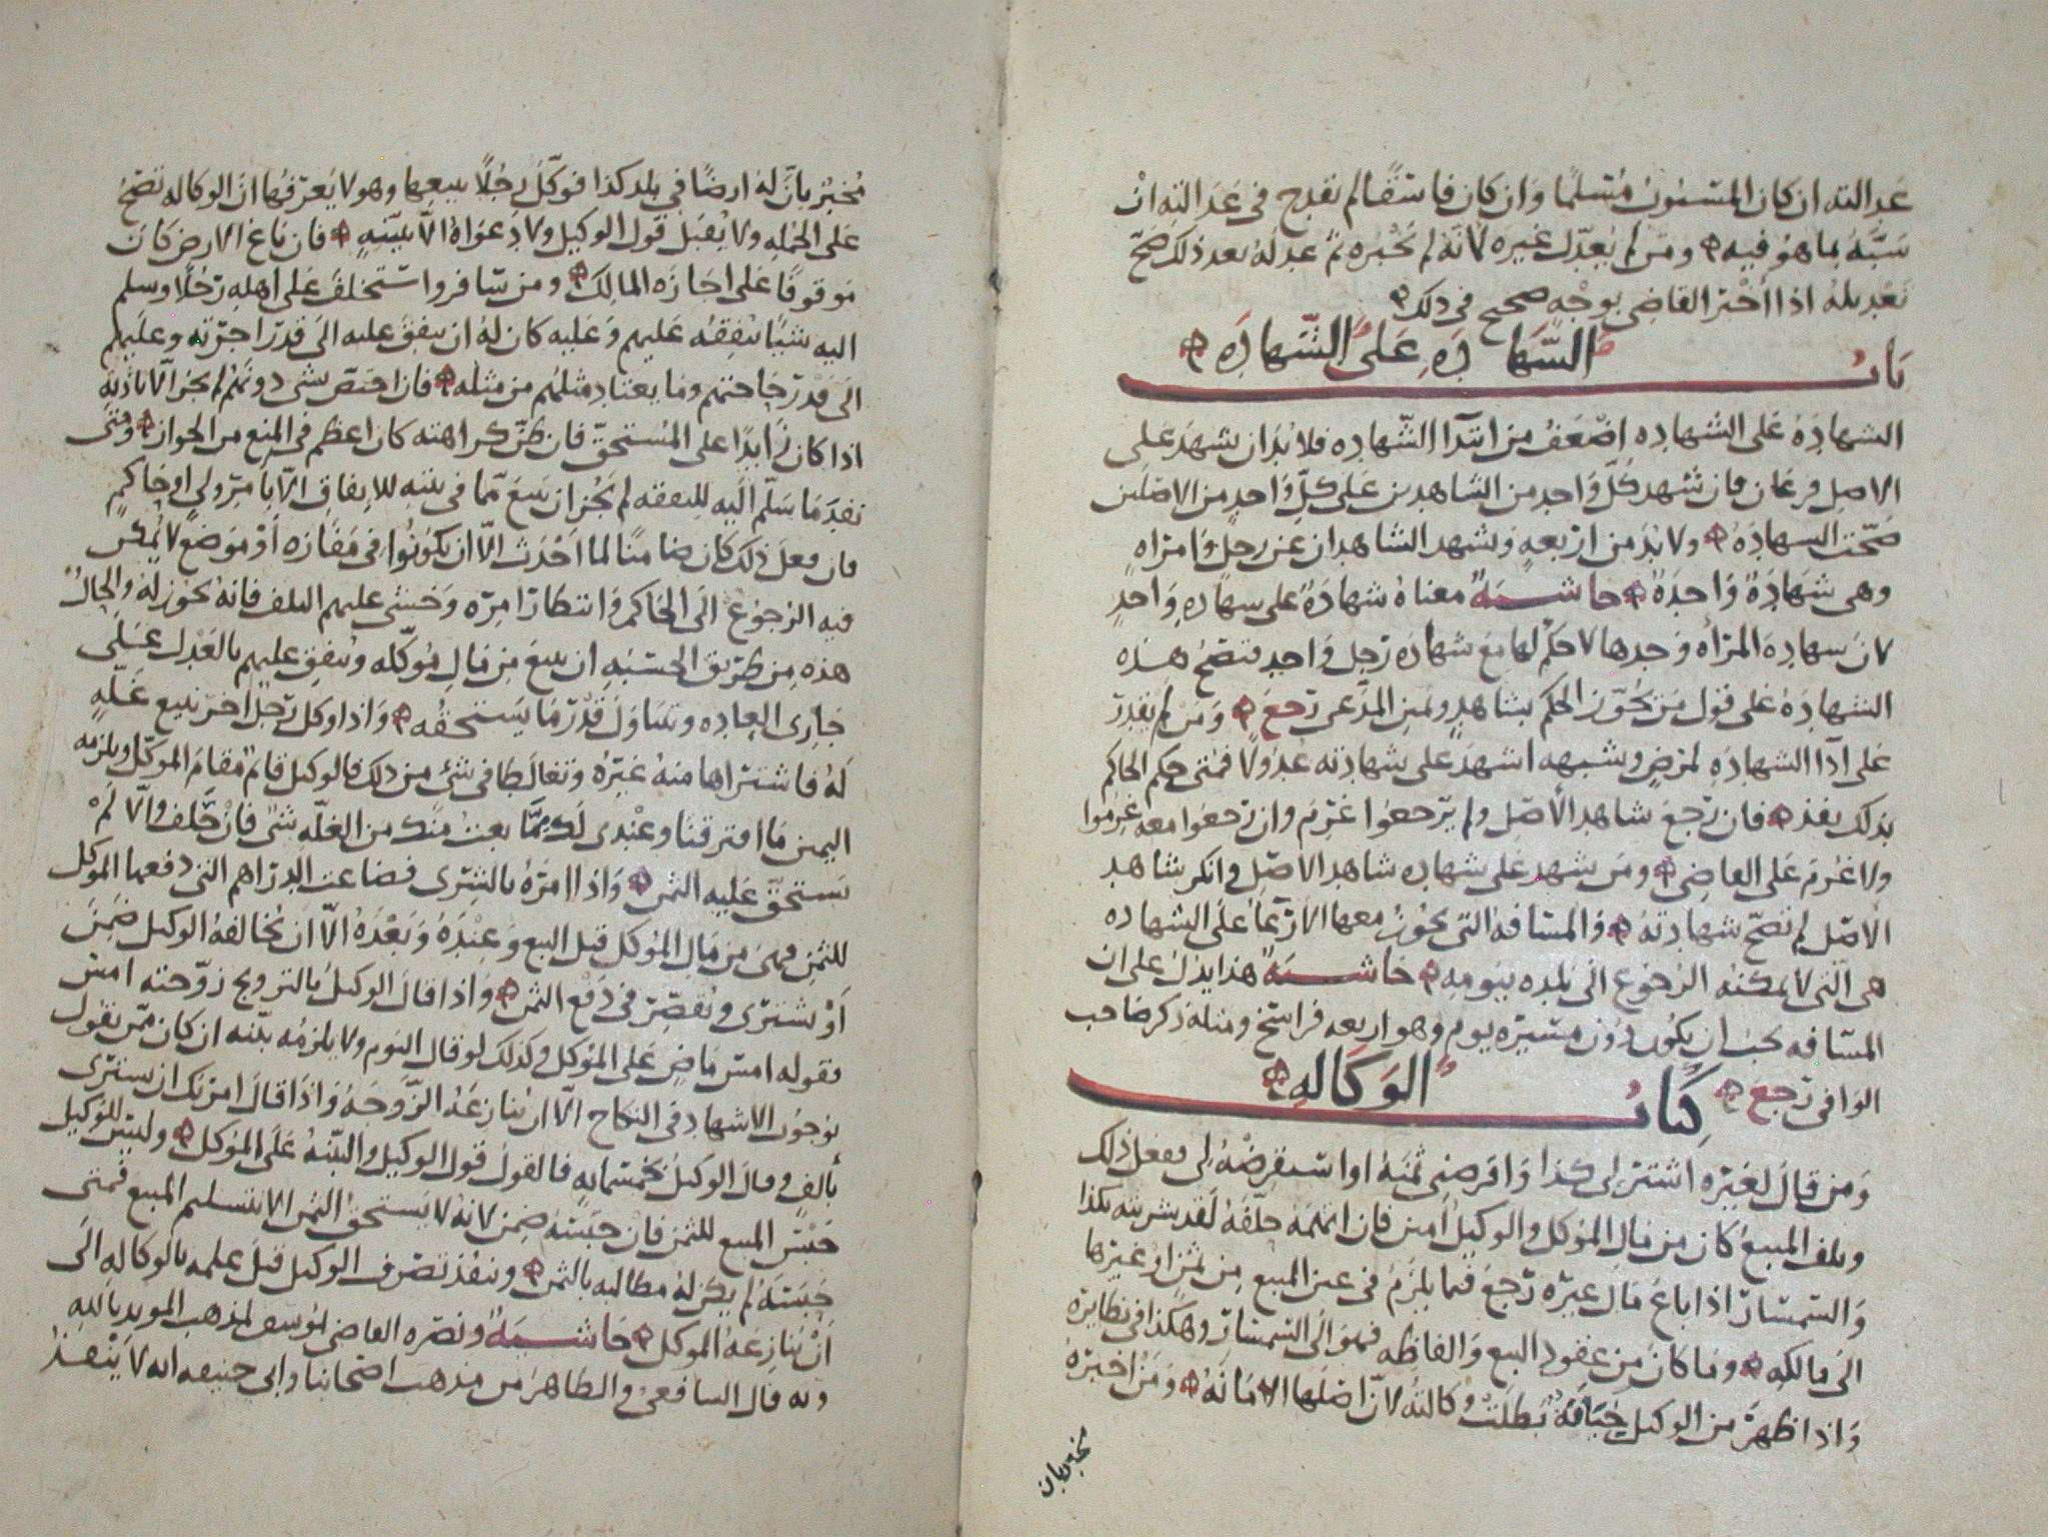 عدالته ان كان المسبوب مسلما وان كان فاسقا لم يقدح في عدالته ان
سبه بما هو فيه ومن لم يعدل غيره لانه لم يخبره ثم عدله بعد ذلك صح
تعديله اذا اخبر القاضي بوجه صحيح في ذلك
باب الشهاده على الشهاده
الشهاده على الشهاده اضعف من ابتدا الشهاده فلا بد ان يشهد على
الاصل فرعان فان شهد كل واحد من الشاهدين على كل واحد من الاصلين
صحت الشهاده ولا بد من اربعه ويشهد الشاهدان عن رجل وامراه
وهي شهادة واحدة حاشية معناه شهادة على شهاده واحد
لان شهاده المراه وحدها لا حكم لها مع شهاده رجل واحد فتصح هذه
الشهاده على قول من يجوز الحكم بشاهد ويمين المدعي رجع ومن لم يقدر
على ادا الشهاده لمرض وشبهه اشهد على شهادته عدولا فمتى حكم الحاكم
بذلك نفذ فان رجع شاهد الاصل ولم يرجعوا غرم وان رجعوا معه غرموا
ولا غرم على القاضي ومن شهد على شهاده شاهد الاصل وانكر شاهد
الاصل لم تصح شهادته والمسافه التي يجوز معها الارعا على الشهاده
هي التي لا يمكنه الرجوع الى بلده بيومه حاشية هذا يدل على ان
المسافه يجب ان يكون دون مسيره يوم وهو اربعه فراسخ ومثله ذكر صاحب
الوافي رجع كتاب الوكاله
ومن قال لغيره اشتر لي كذا واقرضني ثمنه او استقرضه لي ففعل ذلك
وتلف المبيع كان من مال الموكل والوكيل امين فان اتهمه حلفه لقد شريته بكذا
والسمسار اذا باع مال غيره رجع فيما يلزم في عين المبيع من ثمن او غيرها
الى مالكه وما كان من عقود البيع والفاظه فهو الى السمسار وهكذا في نظايره
واذا ظهر من الوكيل خيانة بطلت وكالته لان اصلها الامانه ومن اخبره
مخبر بان
مخبر بان له ارضا في بلد كذا فوكل رجلا يبيعها وهو لا يعرفها ان الوكاله تصح
على الجمله ولا يقبل قول الوكيل ولا دعواه الا ببينه فان باع الارض كان
موقوفا على اجازه المالك ومن سافر واستخلف على اهله رجلا وسلم
اليه شيا ينفقه عليهم وعليه كان له ان ينفق عليه الى قدر اجرته وعليهم
الى قدر حاجتهم وما يعتاد مثلهم من مثله فان اختص بشي دونهم لم يجز الا باذنه
اذا كان زايدا على المستحق فان ظن كراهته كان اعظم في المنع من الجواز ومتى
نفد ما سلم اليه للنفقه لم يجز ان يبيع مما في بيته للانفاق الا بامر ولي او حاكم
فان فعل ذلك كان ضامنا لما احدث الا ان يكونوا في مفازه او موضع لا يمكن
فيه الرجوع الى الحاكم وانتظار امره وخشي عليهم التلف فانه يجوز له والحال
هذه من طريق الحسبه ان يبيع من مال موكله وينفق عليهم بالعدل على
جاري العاده ويتناول قدر ما يستحقه واذا وكل رجل اخر ببيع غله
له فاشتراها منه غيره وتغالطا في شي من ذلك فالوكيل قايم مقام الموكل ويلزمه
اليمين ما افترقنا وعندي لك مما بعت منك من الغله شي فان حلف والا لم
يستحق عليه الثمن واذا امره بالشرى فضاعت الدراهم التي دفعها الموكل
للثمن فهي من مال الموكل قبل البيع وعنده وبعده الا ان يخالفه الوكيل ضمن
او يشتري ويقصر في دفع الثمن واذا قال الوكيل بالترويج زوجته امس
فقوله امس ماض على الموكل وكذلك لو قال اليوم ولا يلزمه بينه ان كان ممن يقول
بوجوب الاشهاد في النكاح الا ان ينازعه الزوجه واذا قال امرتك ان يشتري
بالف وقال الوكيل بخمسمايه فالقول قول الوكيل والبينه على الموكل وليس للوكيل
حبس المبيع للثمن فان حبسه ضمن لانه لا يستحق الثمن الا بتسليم المبيع فمتى
حبسه لم يكن له مطالبه بالثمن وينفذ تصرف الوكيل قبل علمه بالوكاله الى
ان ينازعه الموكل حاشية ونصره القاضي يوسف لمذهب المويد بالله
وبه قال الشافعي والظاهر من مذهب اصحابنا وابي حنيفه انه لا ينفذ